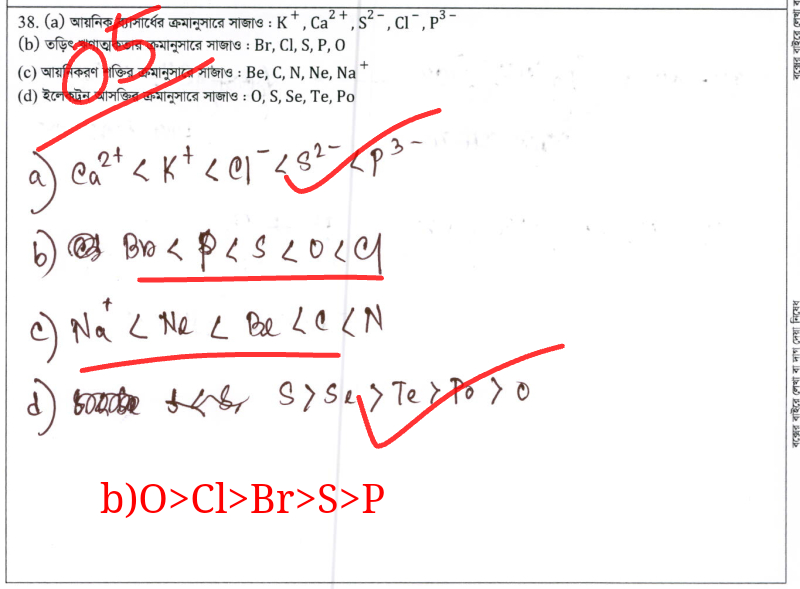 38. (a) আয়নিক ব্যাসার্ধের ক্রমানুসারে সাজাও : K⁺, Ca²⁺, S²⁻, Cl⁻, P³⁻
(b) তড়িৎ ঋণাত্মকতার ক্রমানুসারে সাজাও : Br, Cl, S, P, O
(c) আয়নিকরণ শক্তির ক্রমানুসারে সাজাও : Be, C, N, Ne, Na⁺
(d) ইলেকট্রন আসক্তির ক্রমানুসারে সাজাও : O, S, Se, Te, Po
05
a) Ca²⁺ < K⁺ < Cl⁻ < S²⁻ < P³⁻
b) Br < P < S < O < Cl
c) Na⁺ < Ne < Be < C < N
d) S > Se > Te > Po > O
b)O>Cl>Br>S>P
বক্সের বাইরে লেখা বা দাগ দেয়া নিষেধ